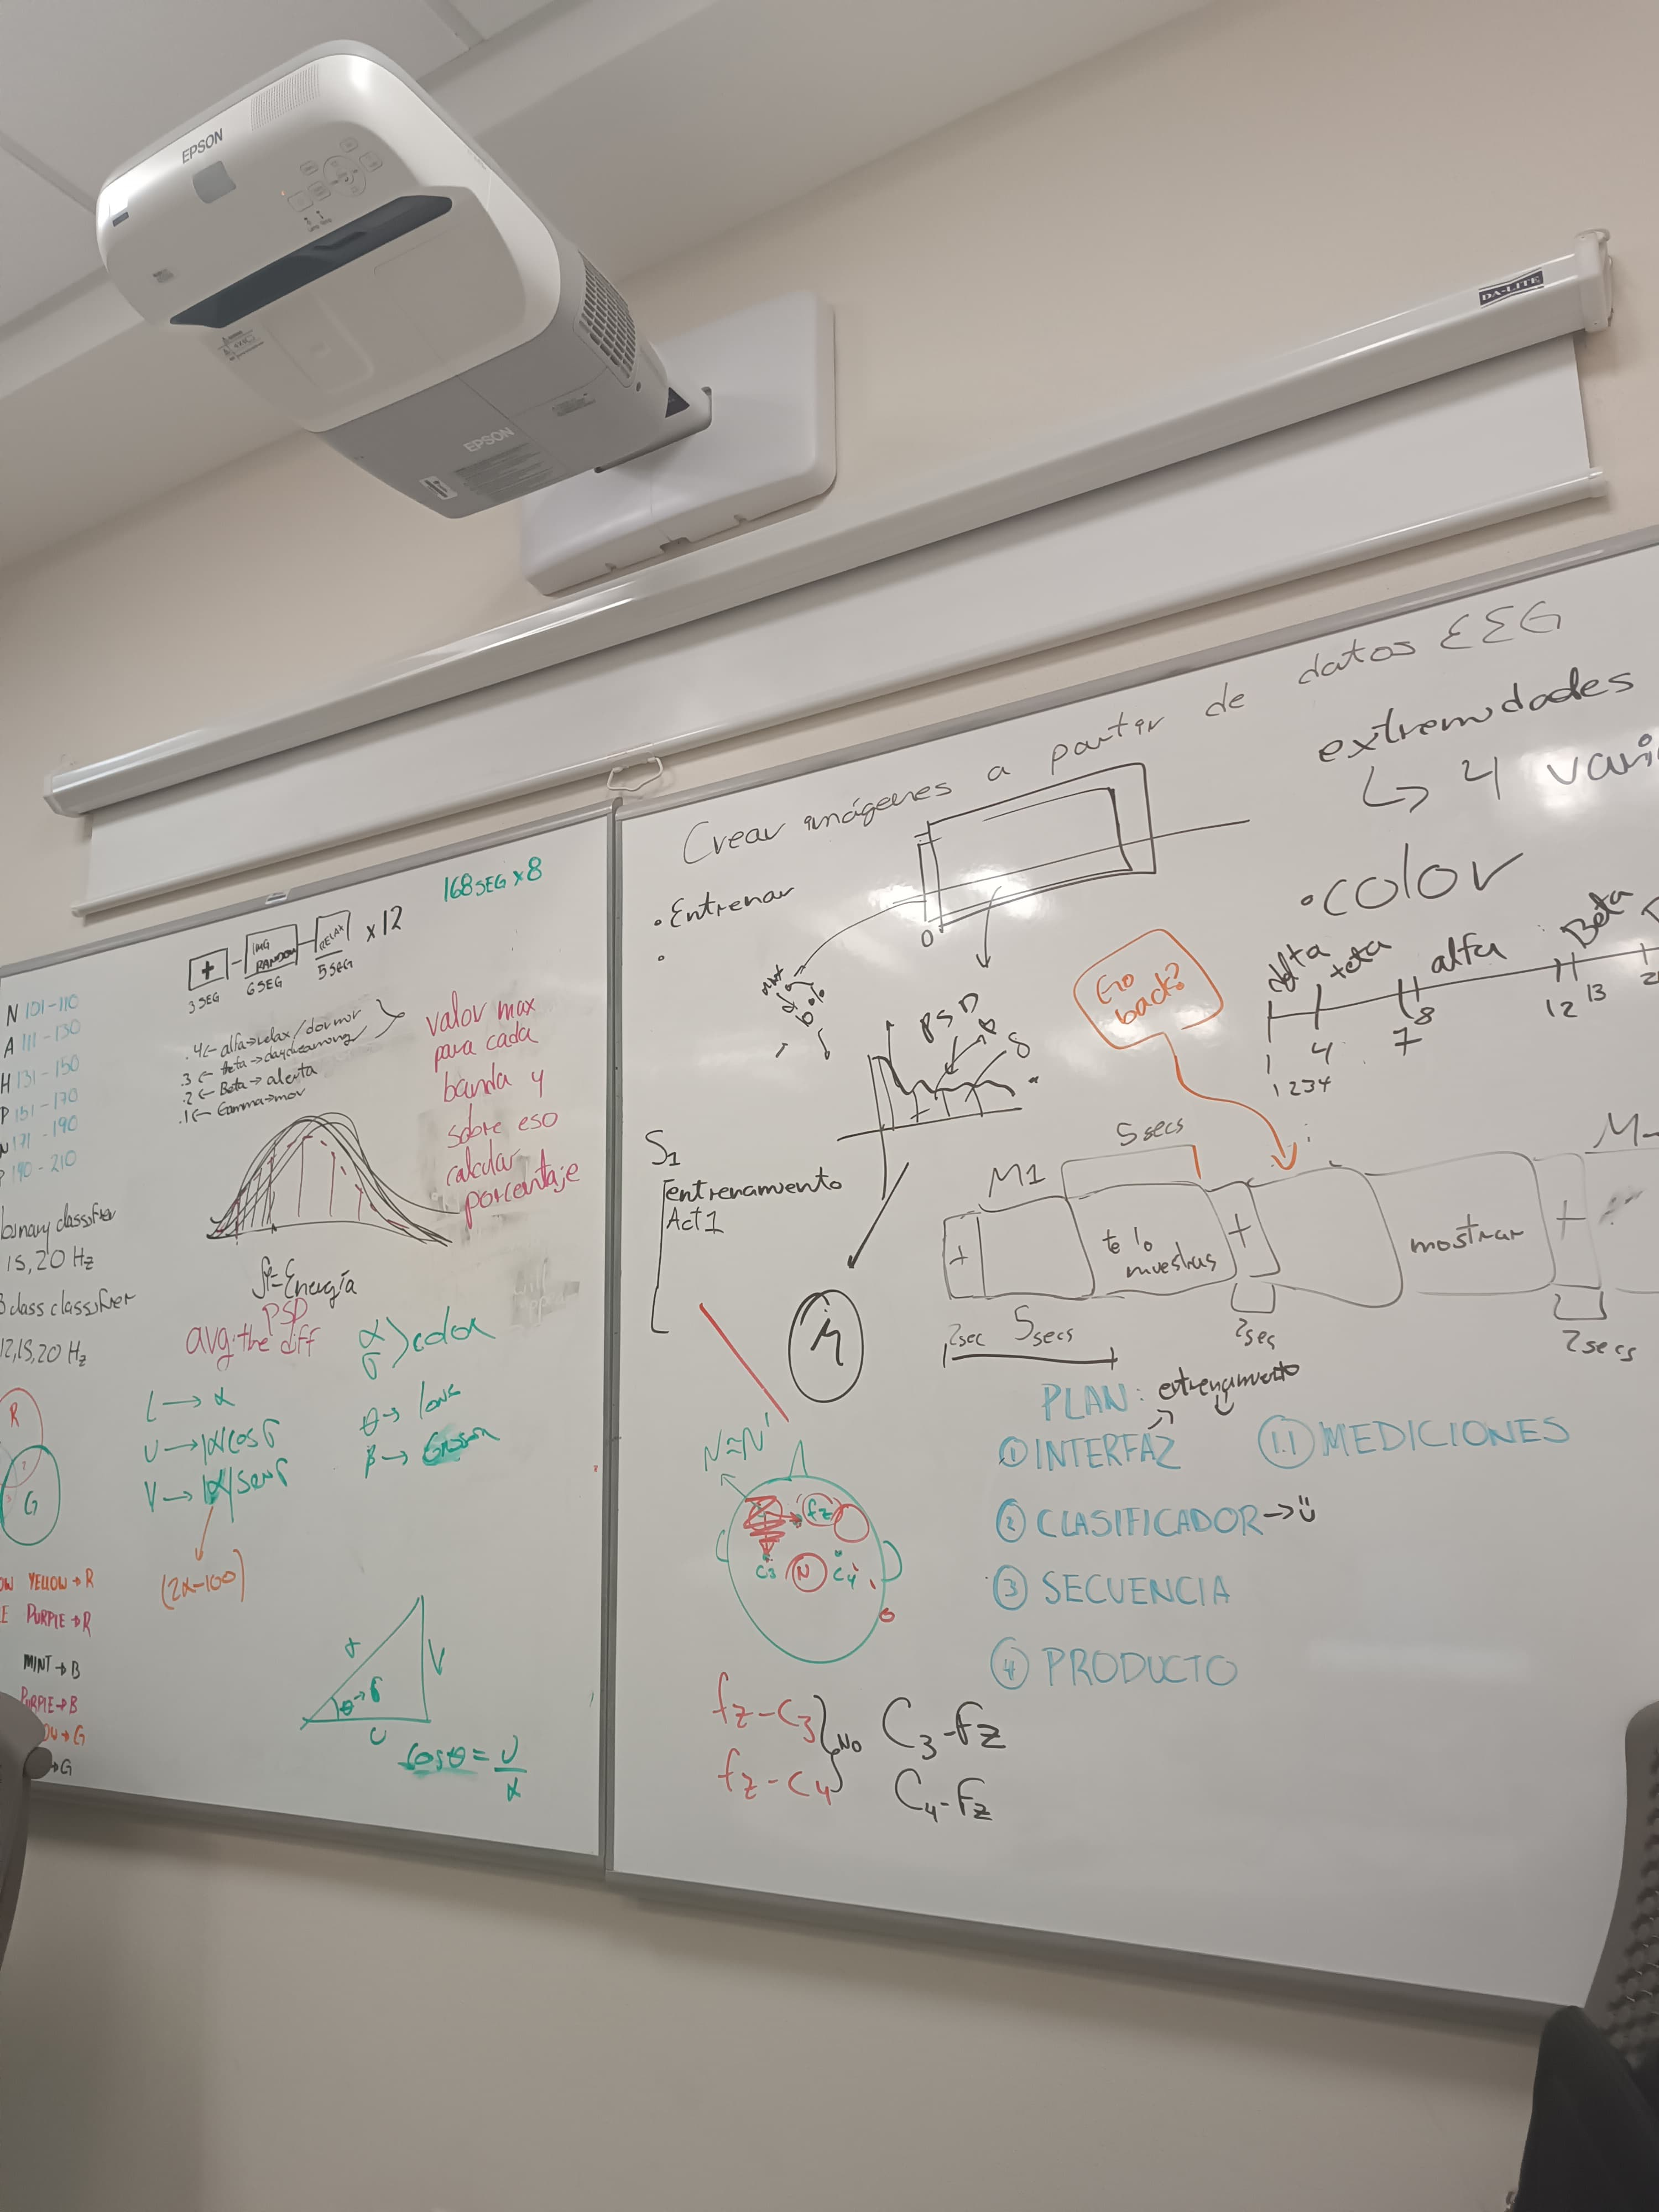 EPSON
EPSON
DA-LITE
168 SEG x 8
+
IMG
RANDOM
RELAX
x 12
3 SEG
6 SEG
5 SEG
N 101-110
A 111-130
H 131-150
P 151-170
N 171-190
P 190-210
.4 ← alfa → relax/dormir
.3 ← theta → daydreaming
.2 ← Beta → alerta
.1 ← Gamma → mov
valor max
para cada
banda y
sobre eso
calcular
porcentaje
binary classifier
15, 20 Hz
3 class classifier
12, 15, 20 Hz
∫ = Energía
PSD
avg. the diff
> color
L → α
U → |α| cos
V → |α| sen
(2α-100)
θ →
β →
R
G
YELLOW → R
PURPLE → R
MINT → B
PURPLE → B
→ G
→ G
V
U
cos θ = U/α
Crear imágenes a partir de datos EEG
extremidades
↳ 4
• Entrenar
•
0
• color
delta
teta
alfa
Beta
1
4
7
8
12
13
1 2 3 4
PSD
Go
back?
S1
entrenamiento
Act 1
5 secs
M1
+
te lo
muestras
+
mostrar
+
2sec
5secs
2seg
2secs
PLAN: entrenamiento
① INTERFAZ
1.1 MEDICIONES
② CLASIFICADOR →
③ SECUENCIA
④ PRODUCTO
N = N'
fz
C3
N
C4
fz - C3
fz - C4
No
C3 - fz
C4 - fz